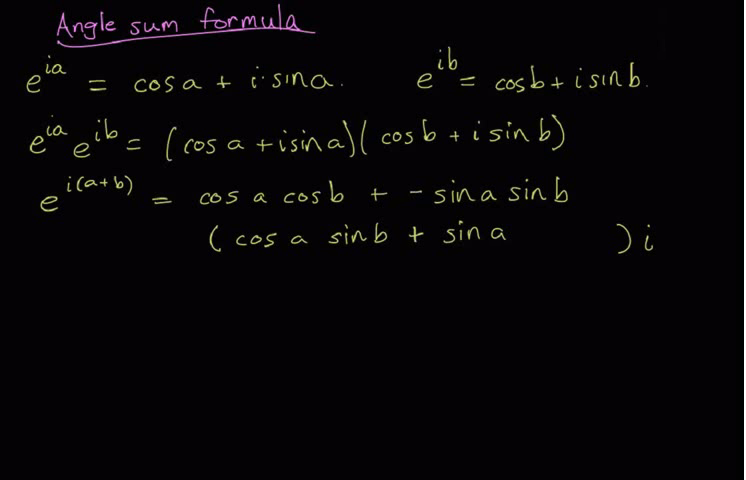 Angle sum formula
e^{ia} = cos a + i·sin a. e^{ib} = cos b + i sin b.
e^{ia} e^{ib} = (cos a + i sin a)(cos b + i sin b)
e^{i(a+b)} = cos a cos b + - sin a sin b
(cos a sin b + sin a ) i